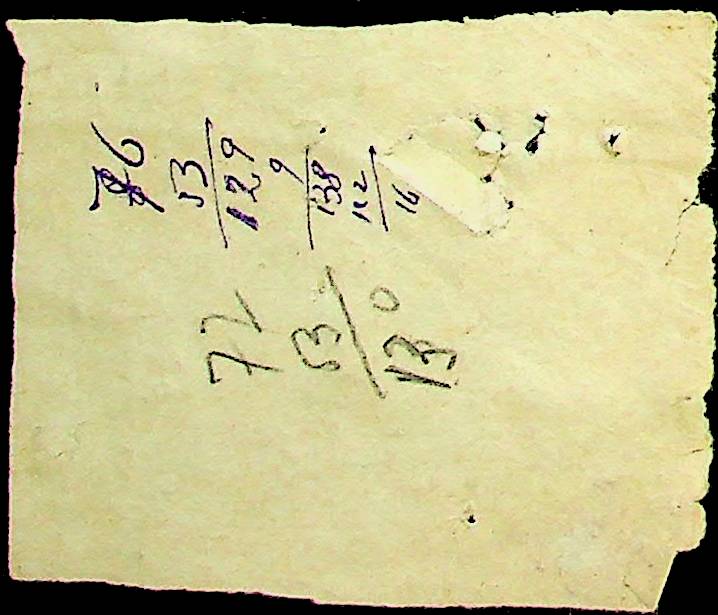 76
53
129
9
138
122
16
77
53
130